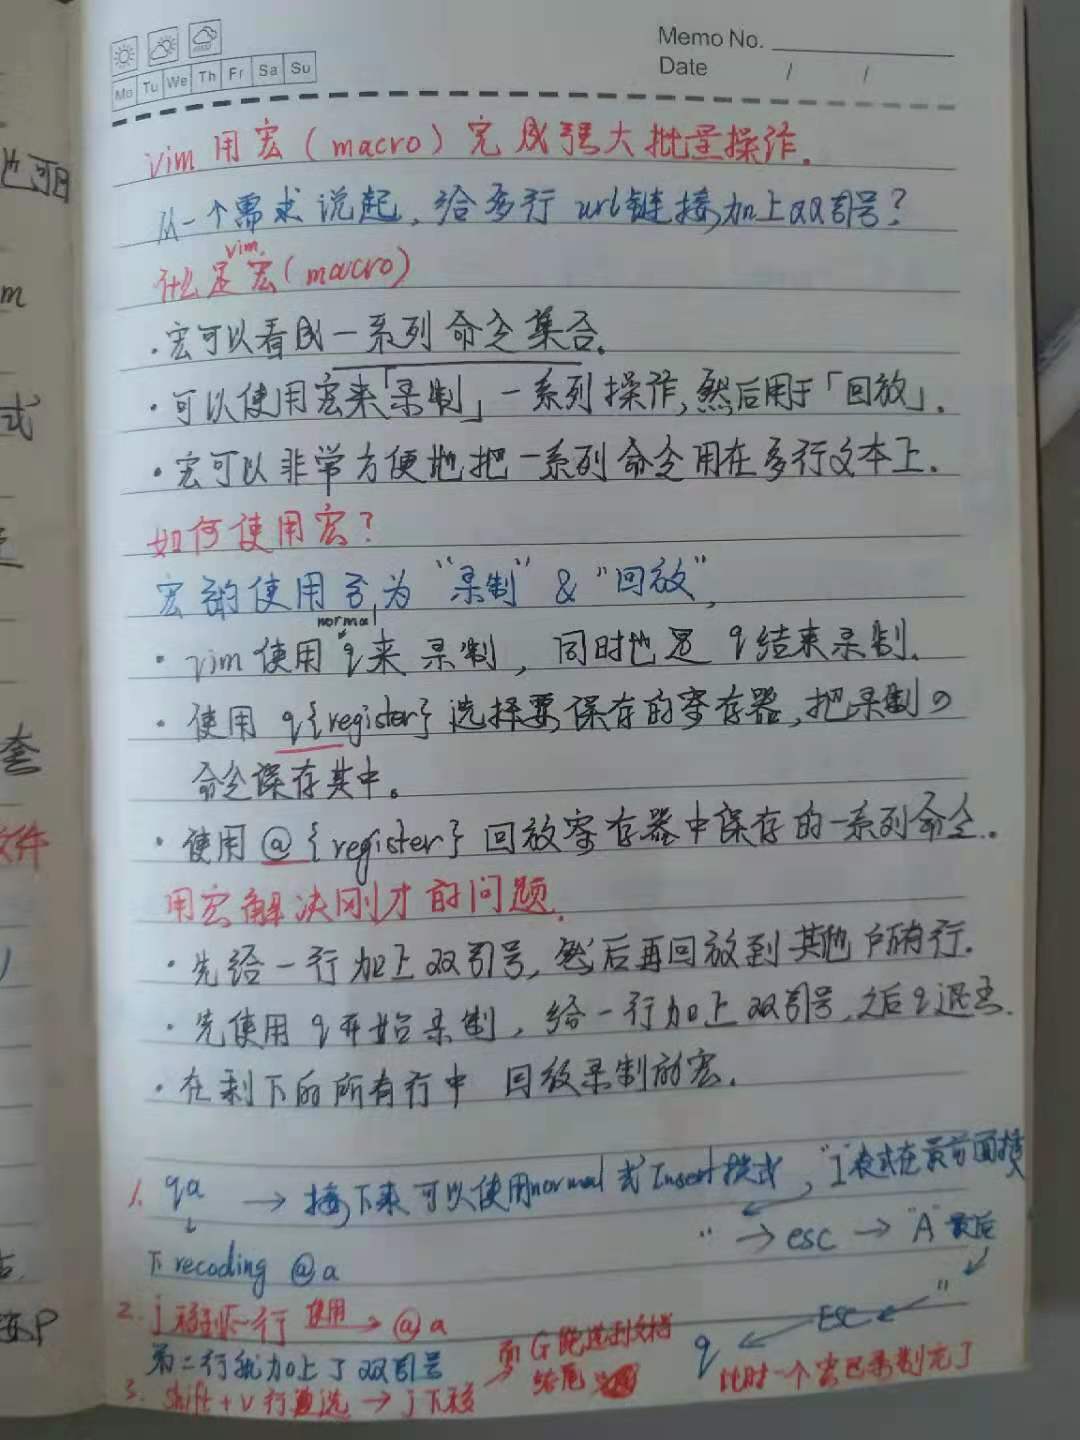 Memo No.
Date / /
Mo Tu We Th Fr Sa Su
vim 用宏(macro)完成强大批量操作.
从一个需求说起, 给多行 url链接加上双引号?
vim
什么是宏(macro)
·宏可以看成一系列命令集合.
·可以使用宏来「录制」一系列操作,然后用于「回放」.
·宏可以非常方便地把一系列命令用在多行文本上.
如何使用宏?
宏的使用分为 "录制" & "回放",
normal
·vim使用 q来录制, 同时也是 q结束录制.
·使用 q{register} 选择要保存的寄存器,把录制の
命令保存其中。
·使用 @{register} 回放寄存器中保存的一系列命令.
用宏解决刚才的问题.
·先给一行加上双引号,然后再回放到其他所有行.
·先使用 q开始录制, 给一行加上双引号,之后q退出.
·在剩下的所有行中 回放录制的宏.
1. qa → 接下来可以使用normal 或 Insert模式, "I模式在最前面接
" → esc → "A" 最后
下 recoding @a
"
2. j移到下一行 使用→ @a
ESC
第二行就加上了双引号
而G能选到文档
结尾
q
此时一个宏已录制完了
3. shift + v 行选 → j下移
也可
m
式
套
文件
P